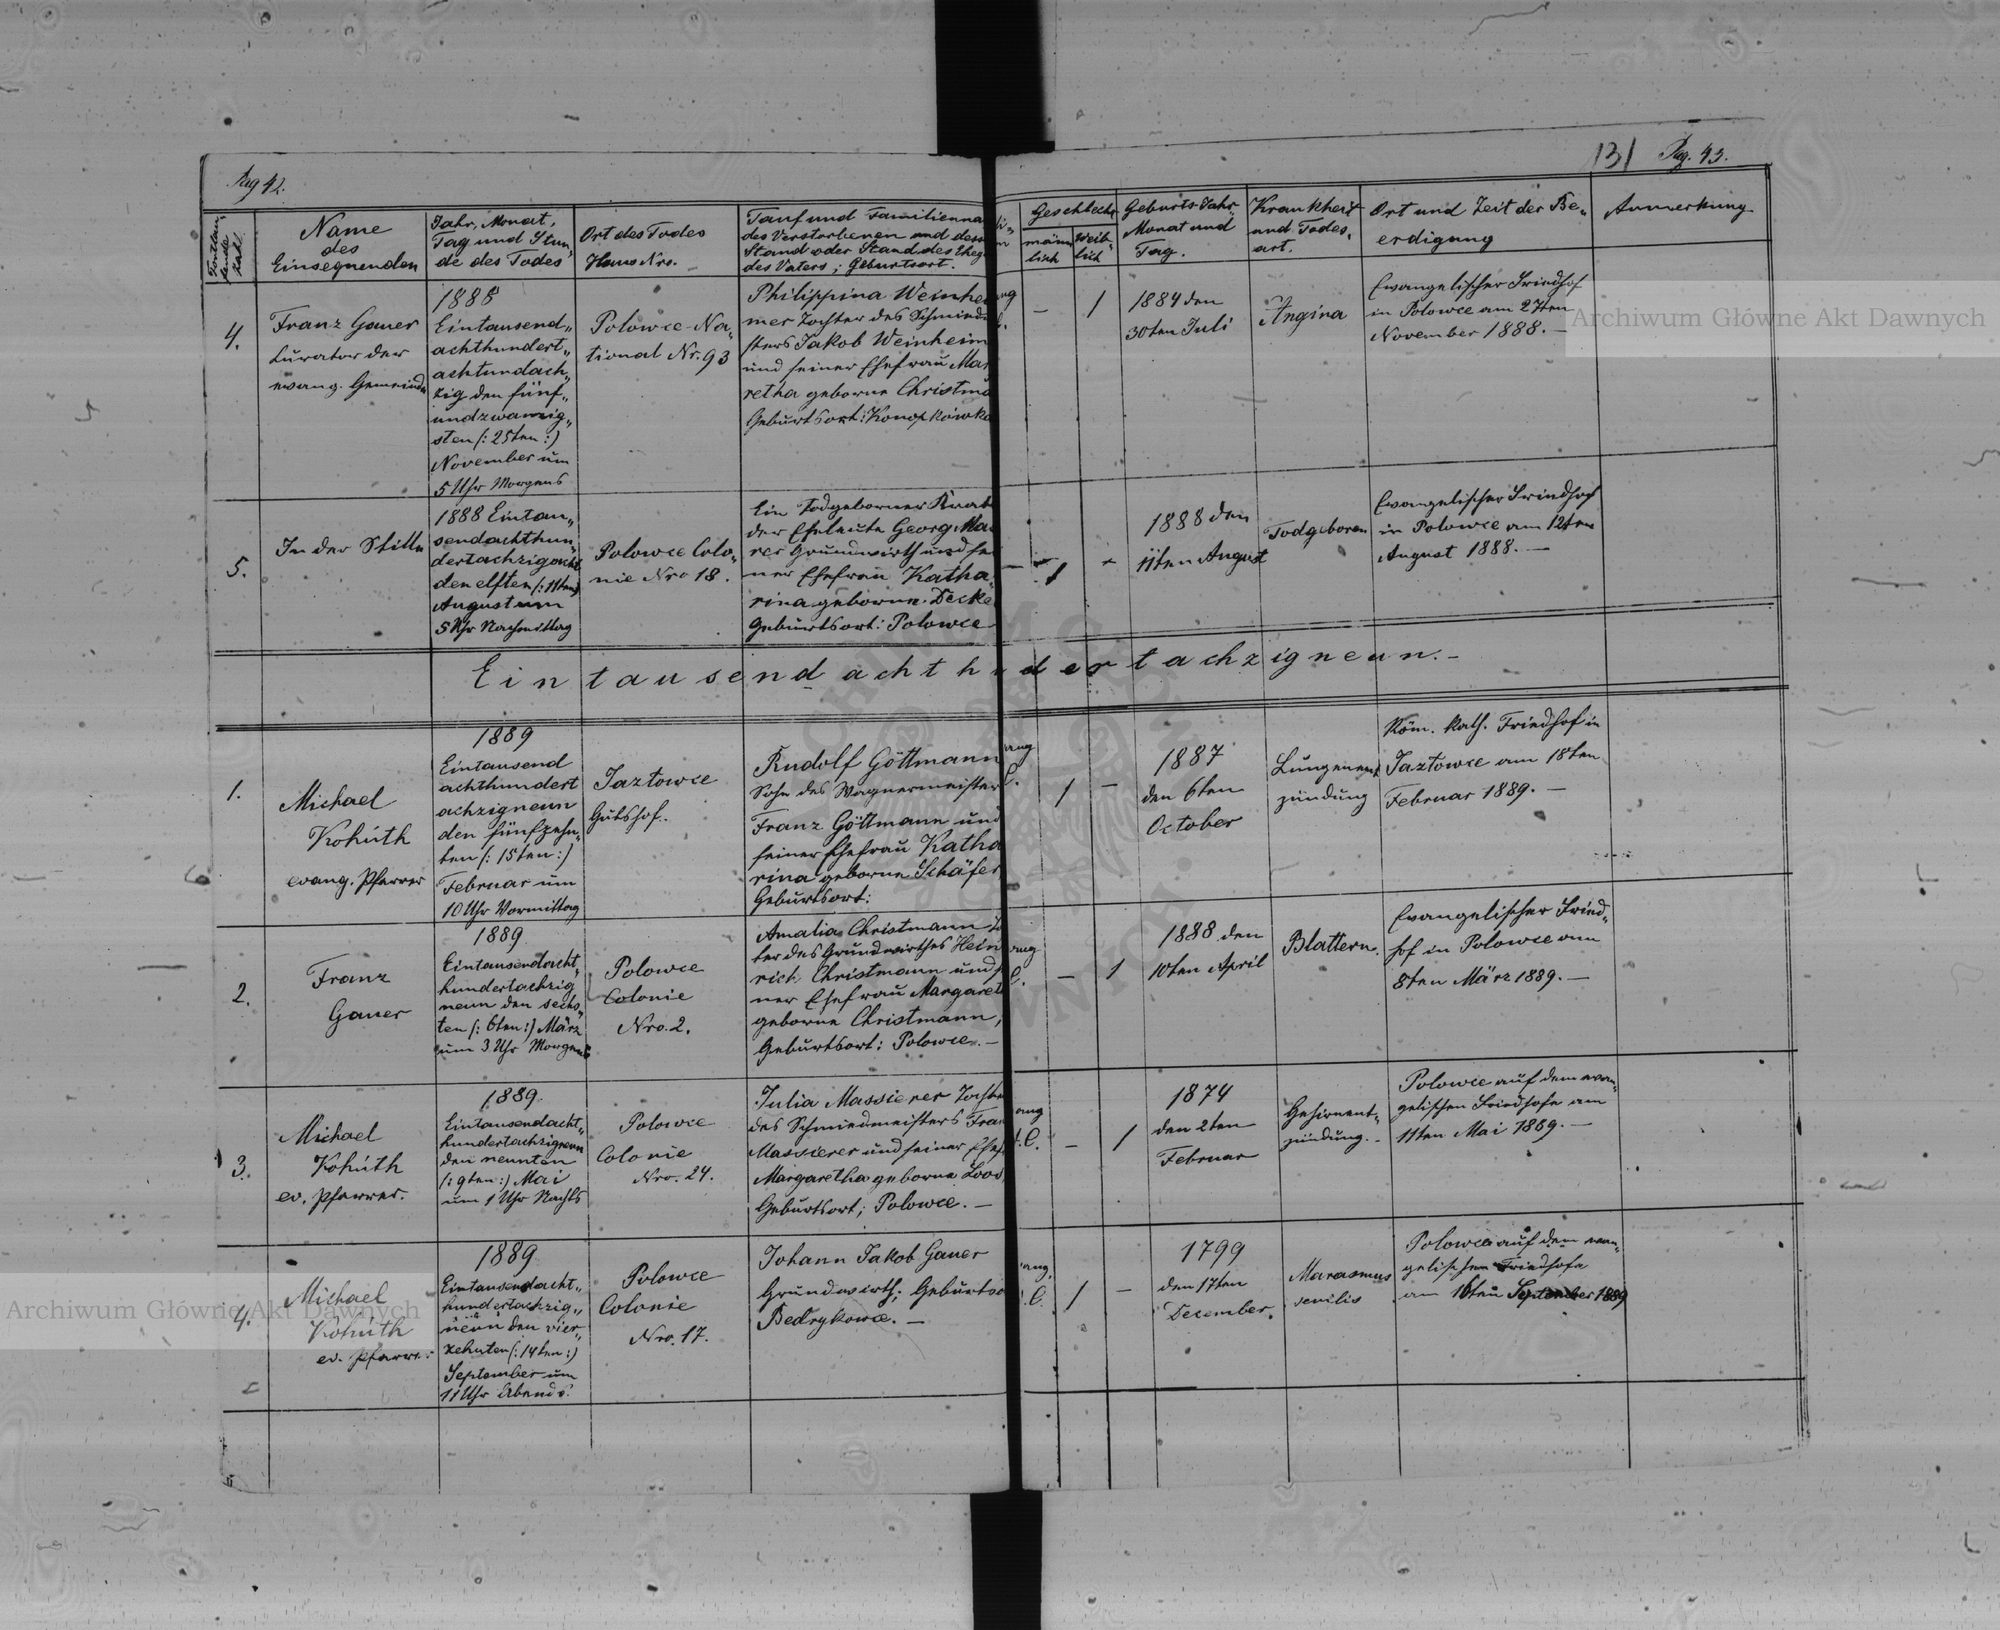 Pag 42.
131 Pag. 43.
Fortlaufende Zahl.
Name
des
Einsegnenden
Jahr, Monat,
Tag und Stun„
de des Todes
Ort des Todes
Haus Nro.
Tauf und Familienna
des Verstorbenen und dess
Stand oder Stand des Eheg
des Vaters; Geburtsort.
Geschlecht
männ
lich
weib„
lich
Geburts Jahr„
Monat und
Tag.
Krankheit
und Todes„
art.
Ort und Zeit der Be„
erdigung
Anmerkung
4.
Franz Gauer
Curator der
evang. Gemeinde
1888
Eintausend„
achthundert„
achtundach„
zig den fünf„
undzwanzig„
sten (: 25ten :)
November um
5 Uhr Morgens
Polowce Na„
tional Nr. 93
Philippina Weinhei
mer Tochter des Schmied
sters Jakob Weinheim
und seiner Ehefrau Mar
retha geborne Christma
Geburtsort: Konopkówka
ang
C.
—
1
1884 den
30ten Juli
Angina
Evangelischer Friedhof
in Polowce am 27ten
November 1888. —
5.
In der Stille
1888 Eintau„
sendachthun„
dertachzigacht
den elften (: 11ten :)
August um
5 Uhr Nachmittag
Polowce Colo„
nie Nro 18.
Ein Todgeborner Knab
der Eheleute Georg Ma
rer Grundwirth und sei
ner Ehefrau Katha„
rina geborne Decke
Geburtsort: Polowce
1
1888 den
11ten August
Todgeboren
Evangelischer Friedhof
in Polowce am 12ten
August 1888. —
Eintausend achthundertachzigneun. —
1.
Michael
Kohúth
evang. Pfarrer
1889
Eintausend
achthundert
achzigneun
den fünfzehn„
ten (: 15ten :)
Februar um
10 Uhr Vormittag
Jaztowce
Gutshof.
Rudolf Göttmann
Sohn des Wagnermeister
Franz Göttmann und
seiner Ehefrau Katha
rina geborne Schäfer,
Geburtsort:
ang
C.
1
—
1887
den 6ten
October
Lungenent
zündung
Röm. kath. Friedhof in
Jaztowce am 18ten
Februar 1889. —
2.
Franz
Gauer
1889
Eintausendacht„
hundertachzig
neun den sechs„
ten (: 6ten :) März
um 3 Uhr Morgens
Polowce
Colonie
Nro. 2.
Amalia Christmann To
ter des Grundwirthes Hein
rich Christmann und s
ner Ehefrau Margaret
geborne Christmann,
Geburtsort: Polowce. —
ang
C.
—
1
1888 den
10ten April
Blattern.
Evangelischer Fried„
hof in Polowce am
8ten März 1889. —
3.
Michael
Kohúth
ev. Pfarrer.
1889.
Eintausendacht„
hundertachzigneun
den neunten
(: 9ten :) Mai
um 1 Uhr Nachts
Polowce
Colonie
Nro. 24.
Julia Massierer Tochter
des Schmiedmeisters Fran
Massierer und seiner Ehef
Margaretha geborne Loos,
Geburtsort; Polowce. —
ang
.C.
—
1
1874
den 2ten
Februar
Gehirnent„
zündung. -
Polowce auf dem evan„
gelischen Friedhofe am
11ten Mai 1889. —
4.
Michael
Kohúth
ev. Pfarrer
1889
Eintausendacht„
hundertachzig„
neun den vier„
zehnten (: 14ten :)
September um
11 Uhr Abends.
Polowce
Colonie
Nro. 17.
Johann Jakob Gauer
Grundwirth; Geburtso
Bedrykowce. —
ang.
.C.
1
—
1799
den 17ten
December.
Marasmus
senilis
Polowce auf dem evan„
gelischen Friedhofe
am 16ten September 1889
Archiwum Główne Akt Dawnych
Archiwum Główne Akt Dawnych